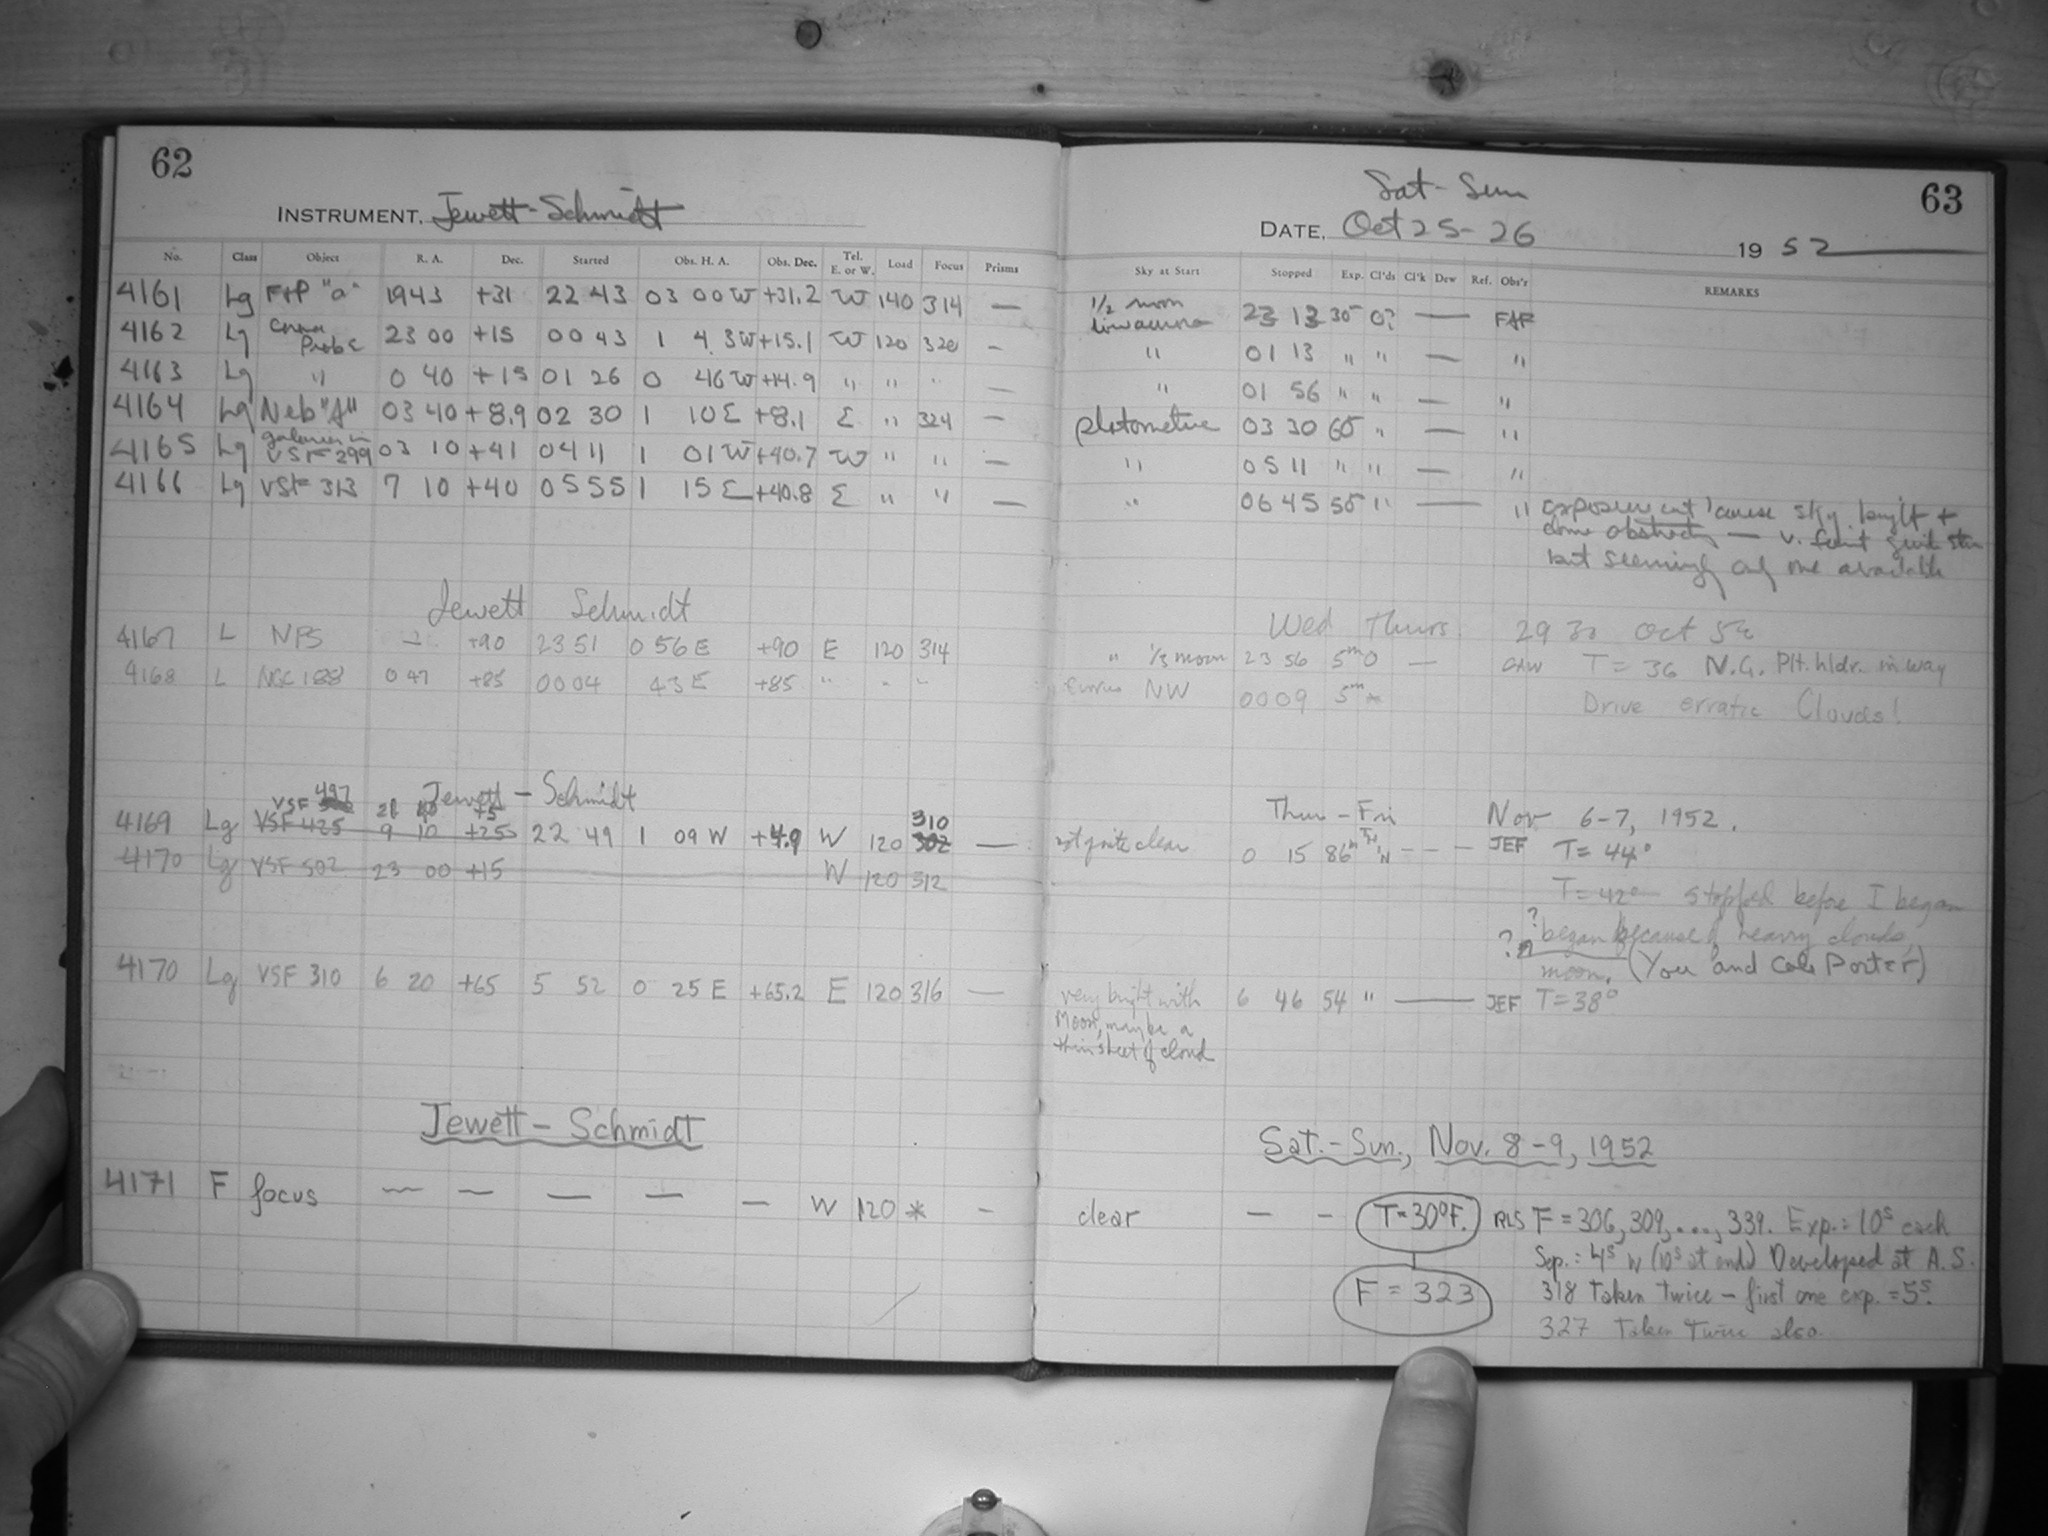 62
INSTRUMENT. Jewett-Schmidt
No. Class Object R. A. Dec. Started Obs. H. A. Obs. Dec. Tel. E. or W. Load Focus Prisms
4161 Lg "a" 1943 +31 22 43 03 00 W +31.2 W 140 314 —
4162 Lg 23 00 +15 00 43 1 4.3W +15.1 W 120 320 —
4163 Lg " 0 40 +15 01 26 0 46 W +14.9 " " " —
4164 Lg Neb "A" 03 40 +8.9 02 30 1 10 E +8.1 E " 324 —
4165 Lg galaxies in VSF 299 03 10 +41 04 11 1 01 W +40.7 W " " —
4166 Lg VSF 313 7 10 +40 05 55 1 15 E +40.8 E " " —
Jewett Schmidt
4167 L NPS — +90 23 51 0 56 E +90 E 120 314
4168 L NGC 188 0 47 +85 0004 43 E +85 " - "
Jewett - Schmidt
VSF 497 21 10 +5 310
4169 Lg VSF 425 9 10 +25 22 49 1 09 W +4.9 W 120 302 —
4170 Lg VSF 502 23 00 +15 W 120 312
4170 Lg VSF 310 6 20 +65 5 52 0 25 E +65.2 E 120 316 —
Jewett - Schmidt
4171 F focus — — — — — W 120 * -
63
Sat - Sun
DATE. Oct 25 - 26 1952
Sky at Start Stopped Exp. Cl'ds Cl'k Dew Ref. Obs'r REMARKS
1/2 moon 23 13 30 0? —
" 01 13 " " — "
" 01 56 " " — "
photometric 03 30 60 " — "
" 05 11 " " — "
" 06 45 50 " — " exposure cut 'cause sky bright +
dome obstructs — v. faint guide star
but seemingly only one available
Wed Thurs 29 30 Oct 52
" 1/3 moon 23 56 5m 0 — CAW T = 36 N.G. Plt. hldr. in way
cirrus NW 0009 5m Drive erratic Clouds!
Thur - Fri Nov 6-7, 1952.
not quite clear 0 15 86m - - - JEF T = 44°
T = 42° stopped before I began
? began because of heavy clouds,
? moon. (You and Cole Porter)
very bright with 6 46 54 " — JEF T = 38°
Moon, maybe a
thin sheet of cloud
Sat. - Sun., Nov. 8-9, 1952
clear — - T=30°F. RLS F = 306, 309, ..., 339. Exp.: 10s each
Sep.: 4s W (10s at end) Developed at A.S.
F = 323 318 Taken twice - first one exp. = 5s.
327 Taken Twice also.